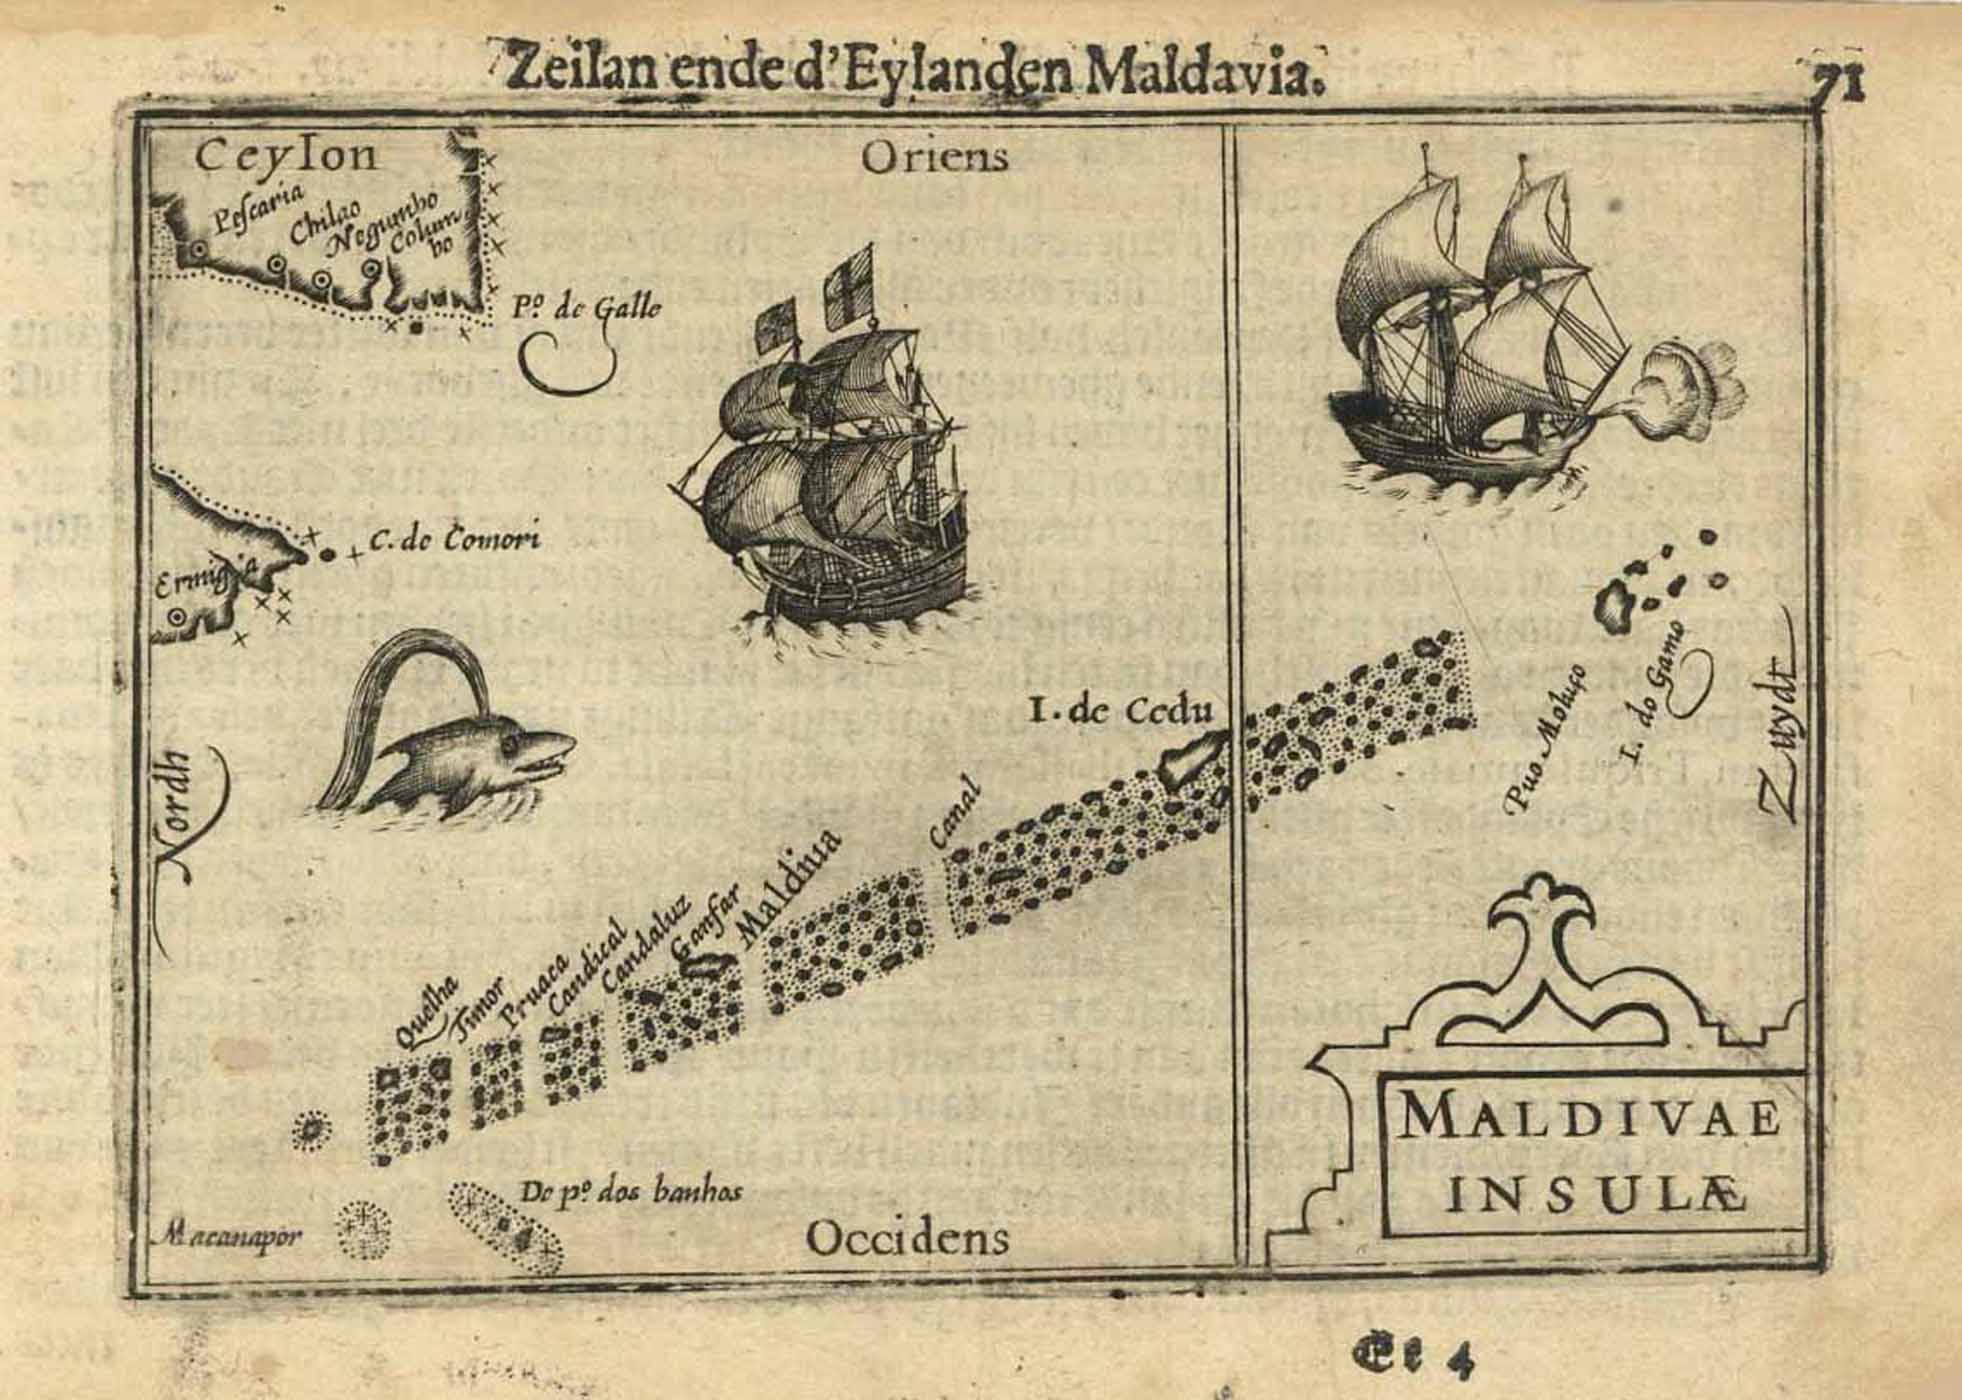 Zeilan ende d'Eylanden Maldavia.
71
Ceylon
Oriens
Peſcaria
Chilao
Negumbo
Colum
bo
Pº. de Galle
C. de Comori
Ermigia
I. de Cedu
Puo Moluço
I. do Gamo
Zuydt
Nordh
Canal
Maldiuia
Ganfar
Candaluz
Candical
Pruaca
Timor
Quelha
De pº. dos banhos
Macanapor
Occidens
MALDIVAE
INSULÆ